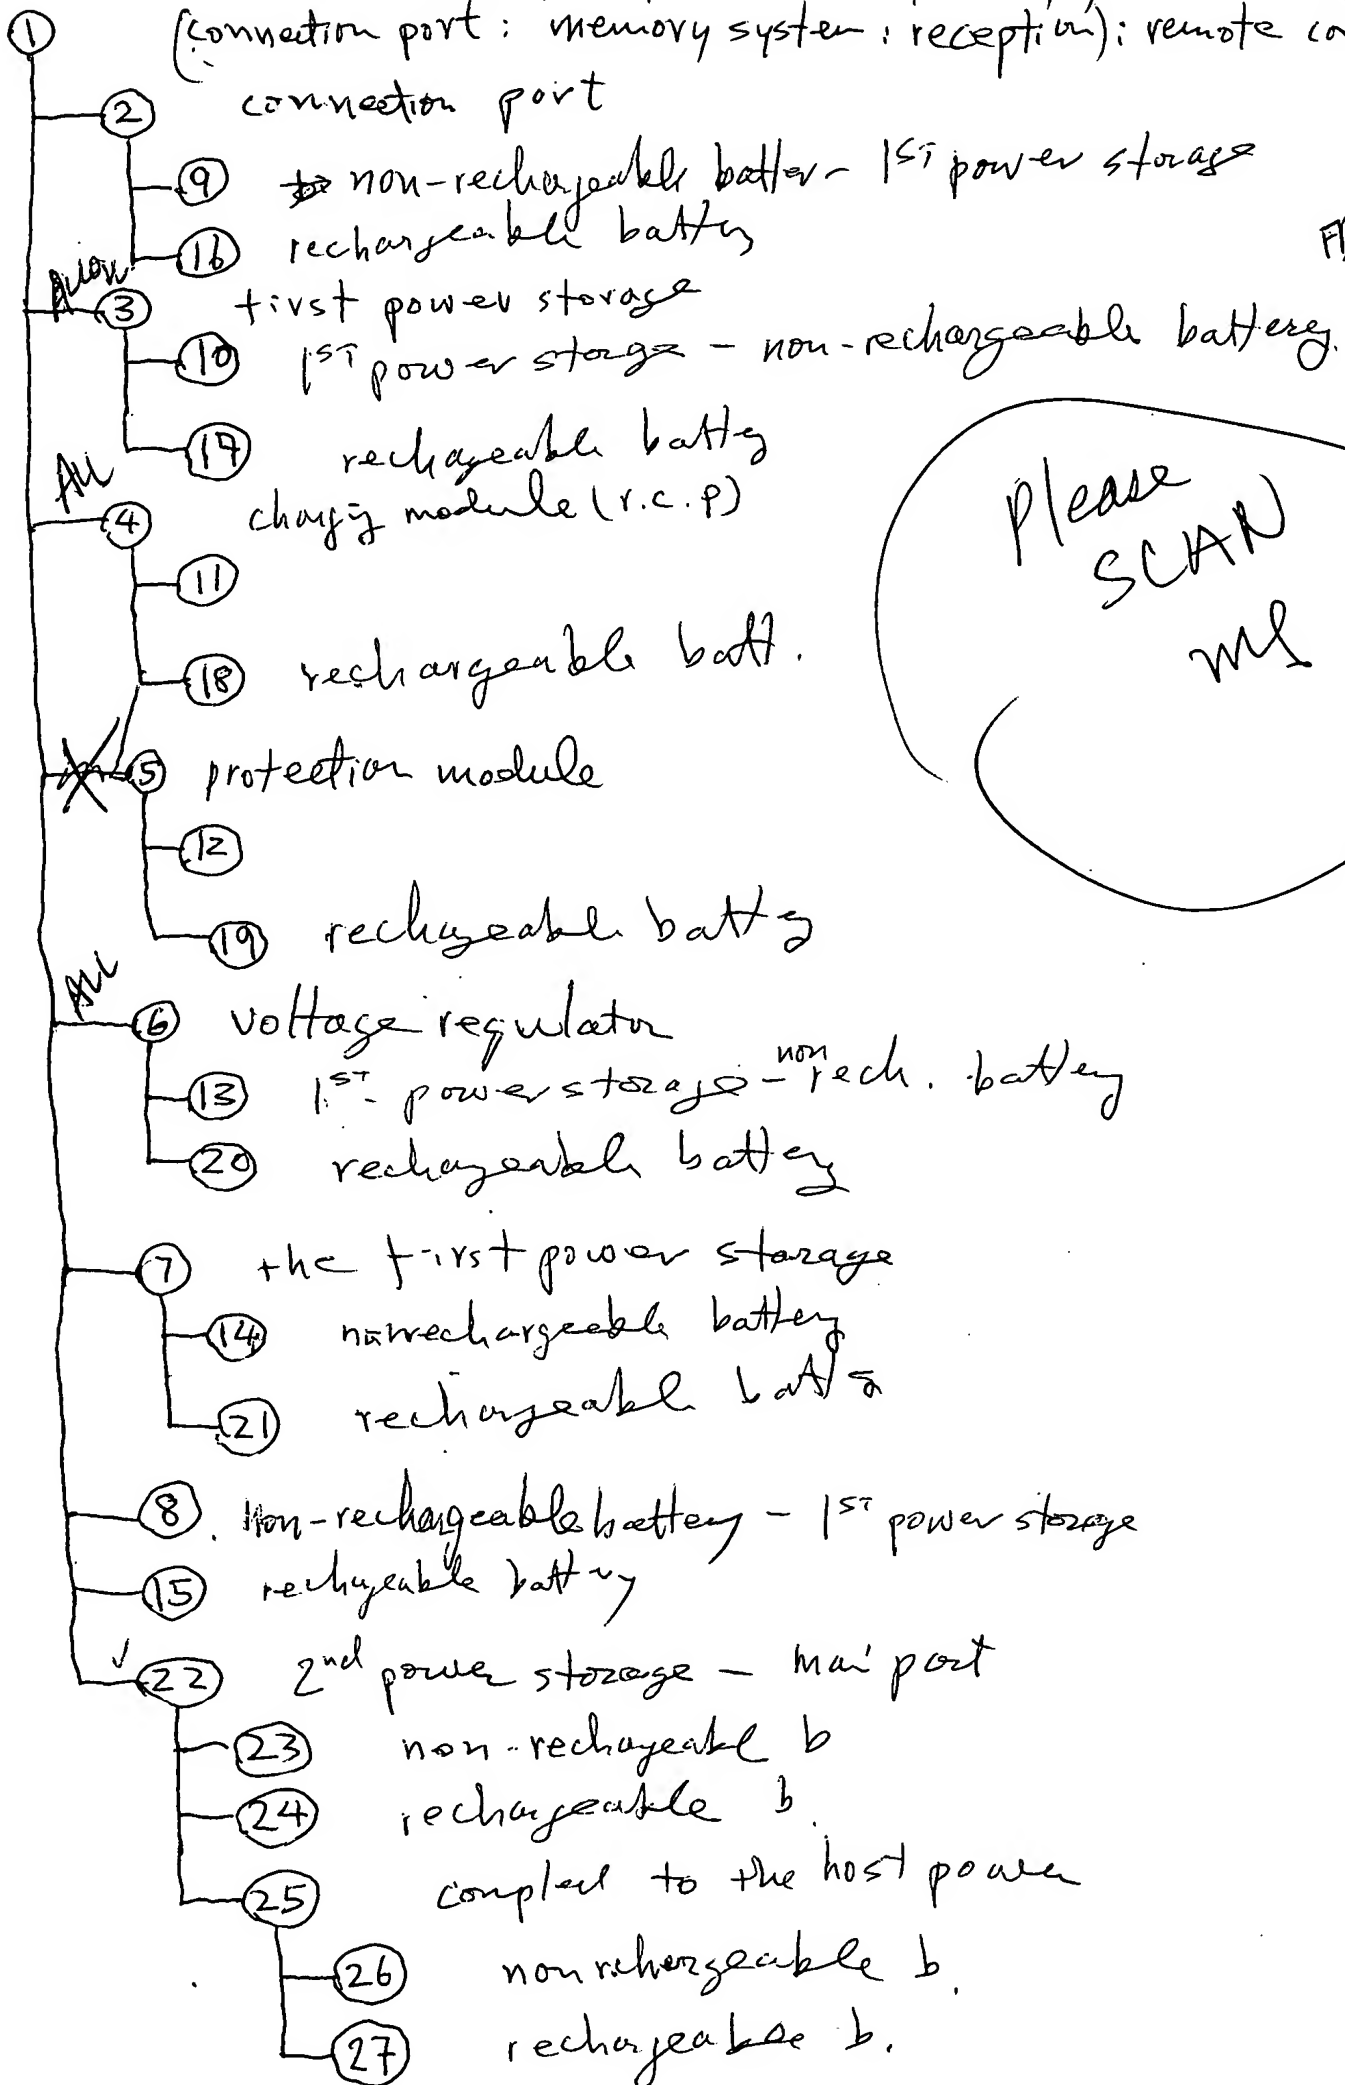 ① (connection port : memory system : reception) : remote co
② connection port
⑨ non-rechargeable batter - 1ST power storage
⑯ rechargeable battey
③ first power storage
⑩ 1ST power storge - non-rechargeable batterey.
⑰ rechageable battey
All
④ chargig module (r.c.p)
Please
SCAN
⑪
⑱ rechargeable batt.
⑤ protection module
⑫
⑲ rechageable battey
All
⑥ voltage regulator
⑬ 1ST power storage - non rech. battery
⑳ rechageable battery
⑦ the first power storage
⑭ nonrechargeable battery
㉑ rechargeable batt
⑧. Non-rechargeable battery - 1ST power storage
⑮ rechageable battry
✓ ㉒ 2nd power storage - mai port
㉓ non-rechageable b
㉔ rechargeable b.
㉕ coupled to the host power
㉖ nonrechergeable b.
㉗ rechargeable b.